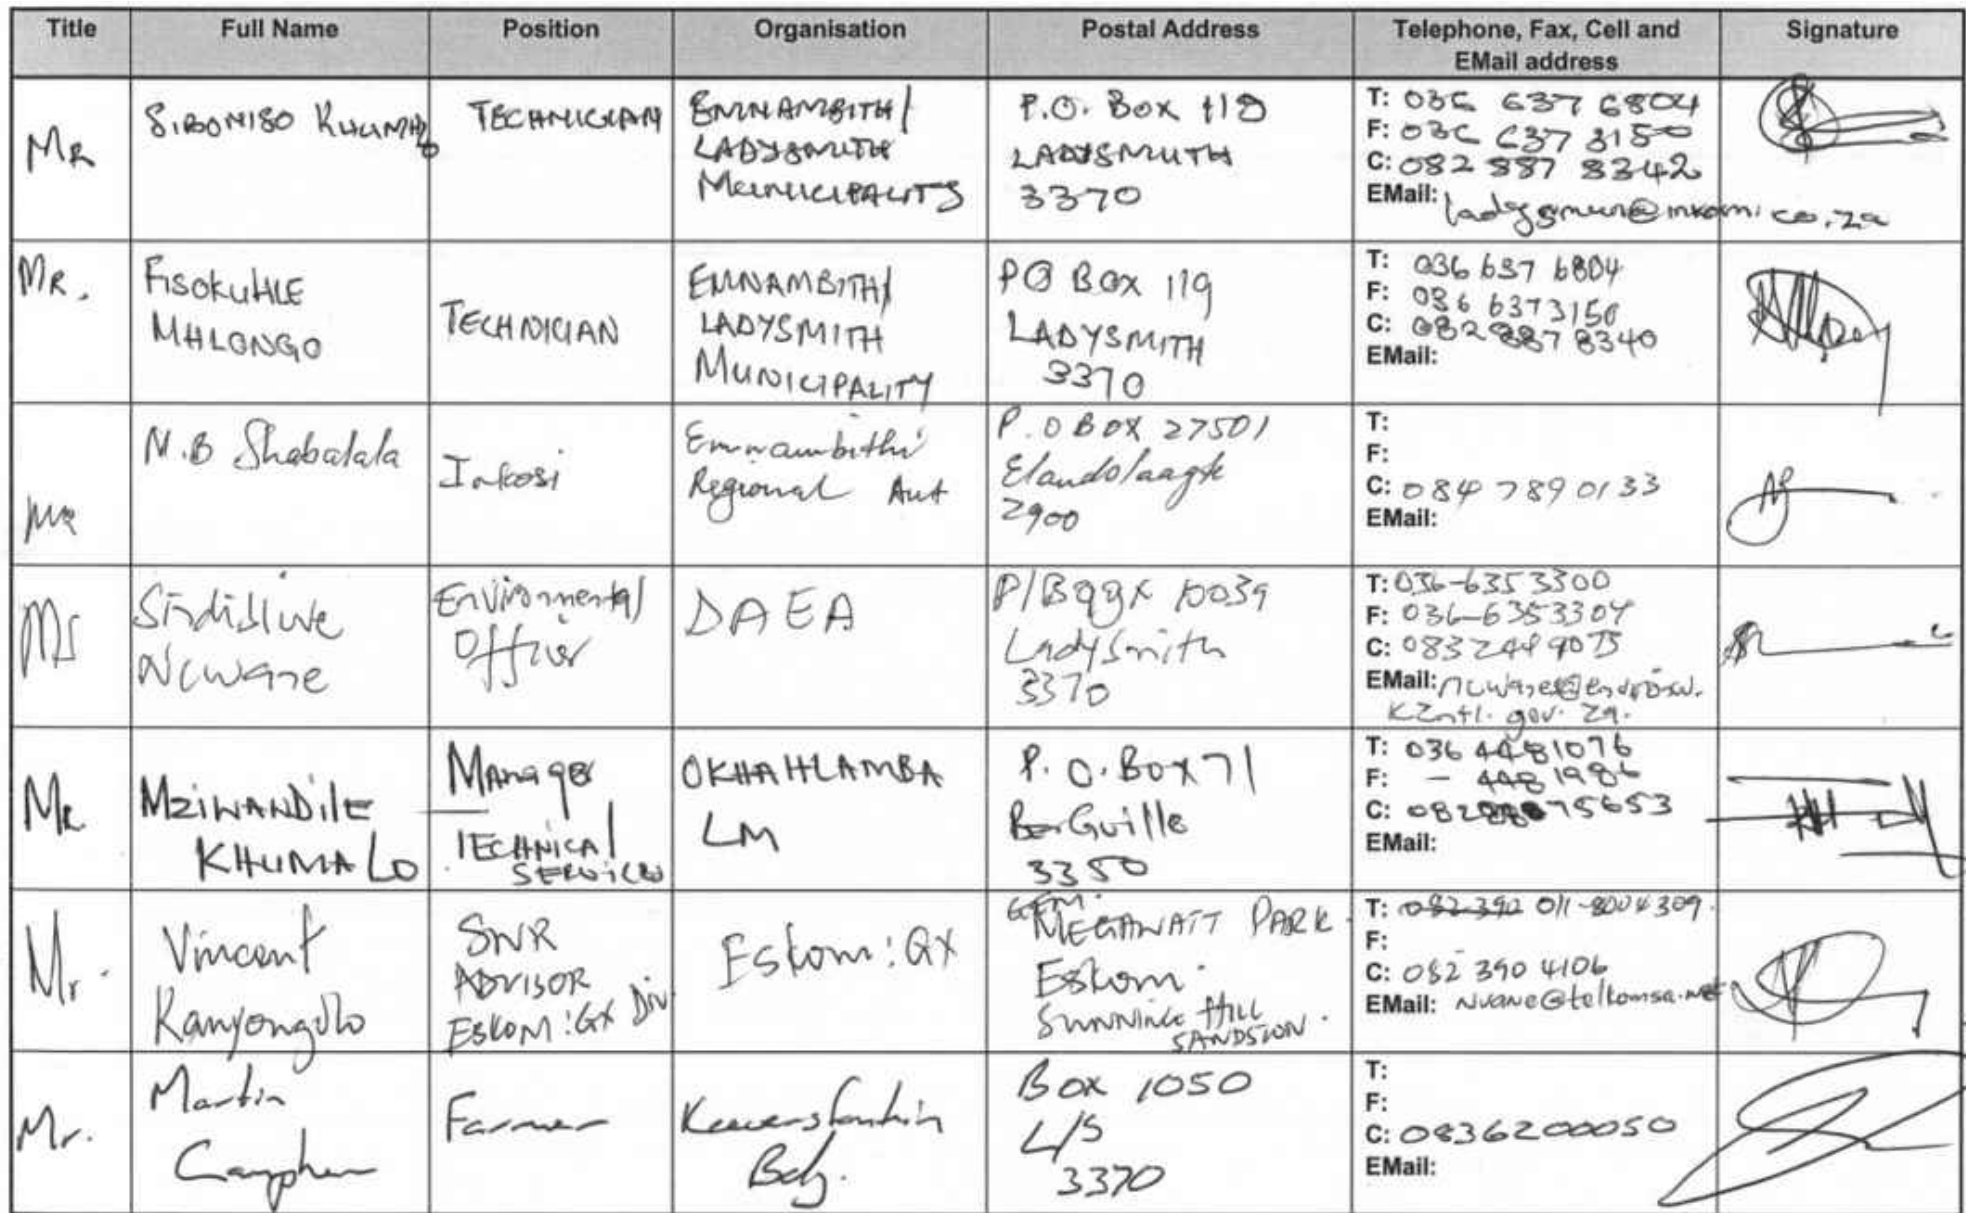 Title Full Name Position Organisation Postal Address Telephone, Fax, Cell and EMail address Signature
MR
SIBONISO KHUMALO
TECHNICIAN
EMNAMBITHI/
LADYSMITH
MUNICIPALITY
P.O. BOX 119
LADYSMITH
3370
T: 036 637 6804
F: 036 637 3150
C: 082 887 8342
EMail: co.za
MR.
FISOKUHLE
MHLONGO
TECHNICIAN
EMNAMBITHI/
LADYSMITH
MUNICIPALITY
PO BOX 119
LADYSMITH
3370
T: 036 637 6804
F: 036 6373150
C: 082 887 8340
EMail:
MR
N.B Shabalala
Inkosi
Emnambithi
Regional Aut
P.O BOX 27501
Elandslaagte
2900
T:
F:
C: 084 789 0133
EMail:
MS
Sindisiwe
Ncwane
Environmental
Officer
DAEA
P/Bag X 10039
Ladysmith
3370
T: 036-6353300
F: 036-6353304
C: 083 2449075
EMail:
kzntl.gov.za.
Mr
MZIWANDILE
KHUMALO
Manager
TECHNICAL
SERVICES
OKHAHLAMBA
LM
P.O. BOX 71
BerGville
3350
T: 036 4481076
F: - 448 1986
C: 75653
EMail:
Mr.
Vincent
Kanyongolo
SNR
ADVISOR
ESKOM:GX Div
Eskom:GX
MEGAWATT PARK
Eskom.
SUNNING HILL
SANDTON.
T: 082-390 011-8004309.
F:
C: 082 390 4106
EMail: @telkomsa.net
Mr.
Martin
Farmer
Bdy.
BOX 1050
L/S
3370
T:
F:
C: 0836200050
EMail: